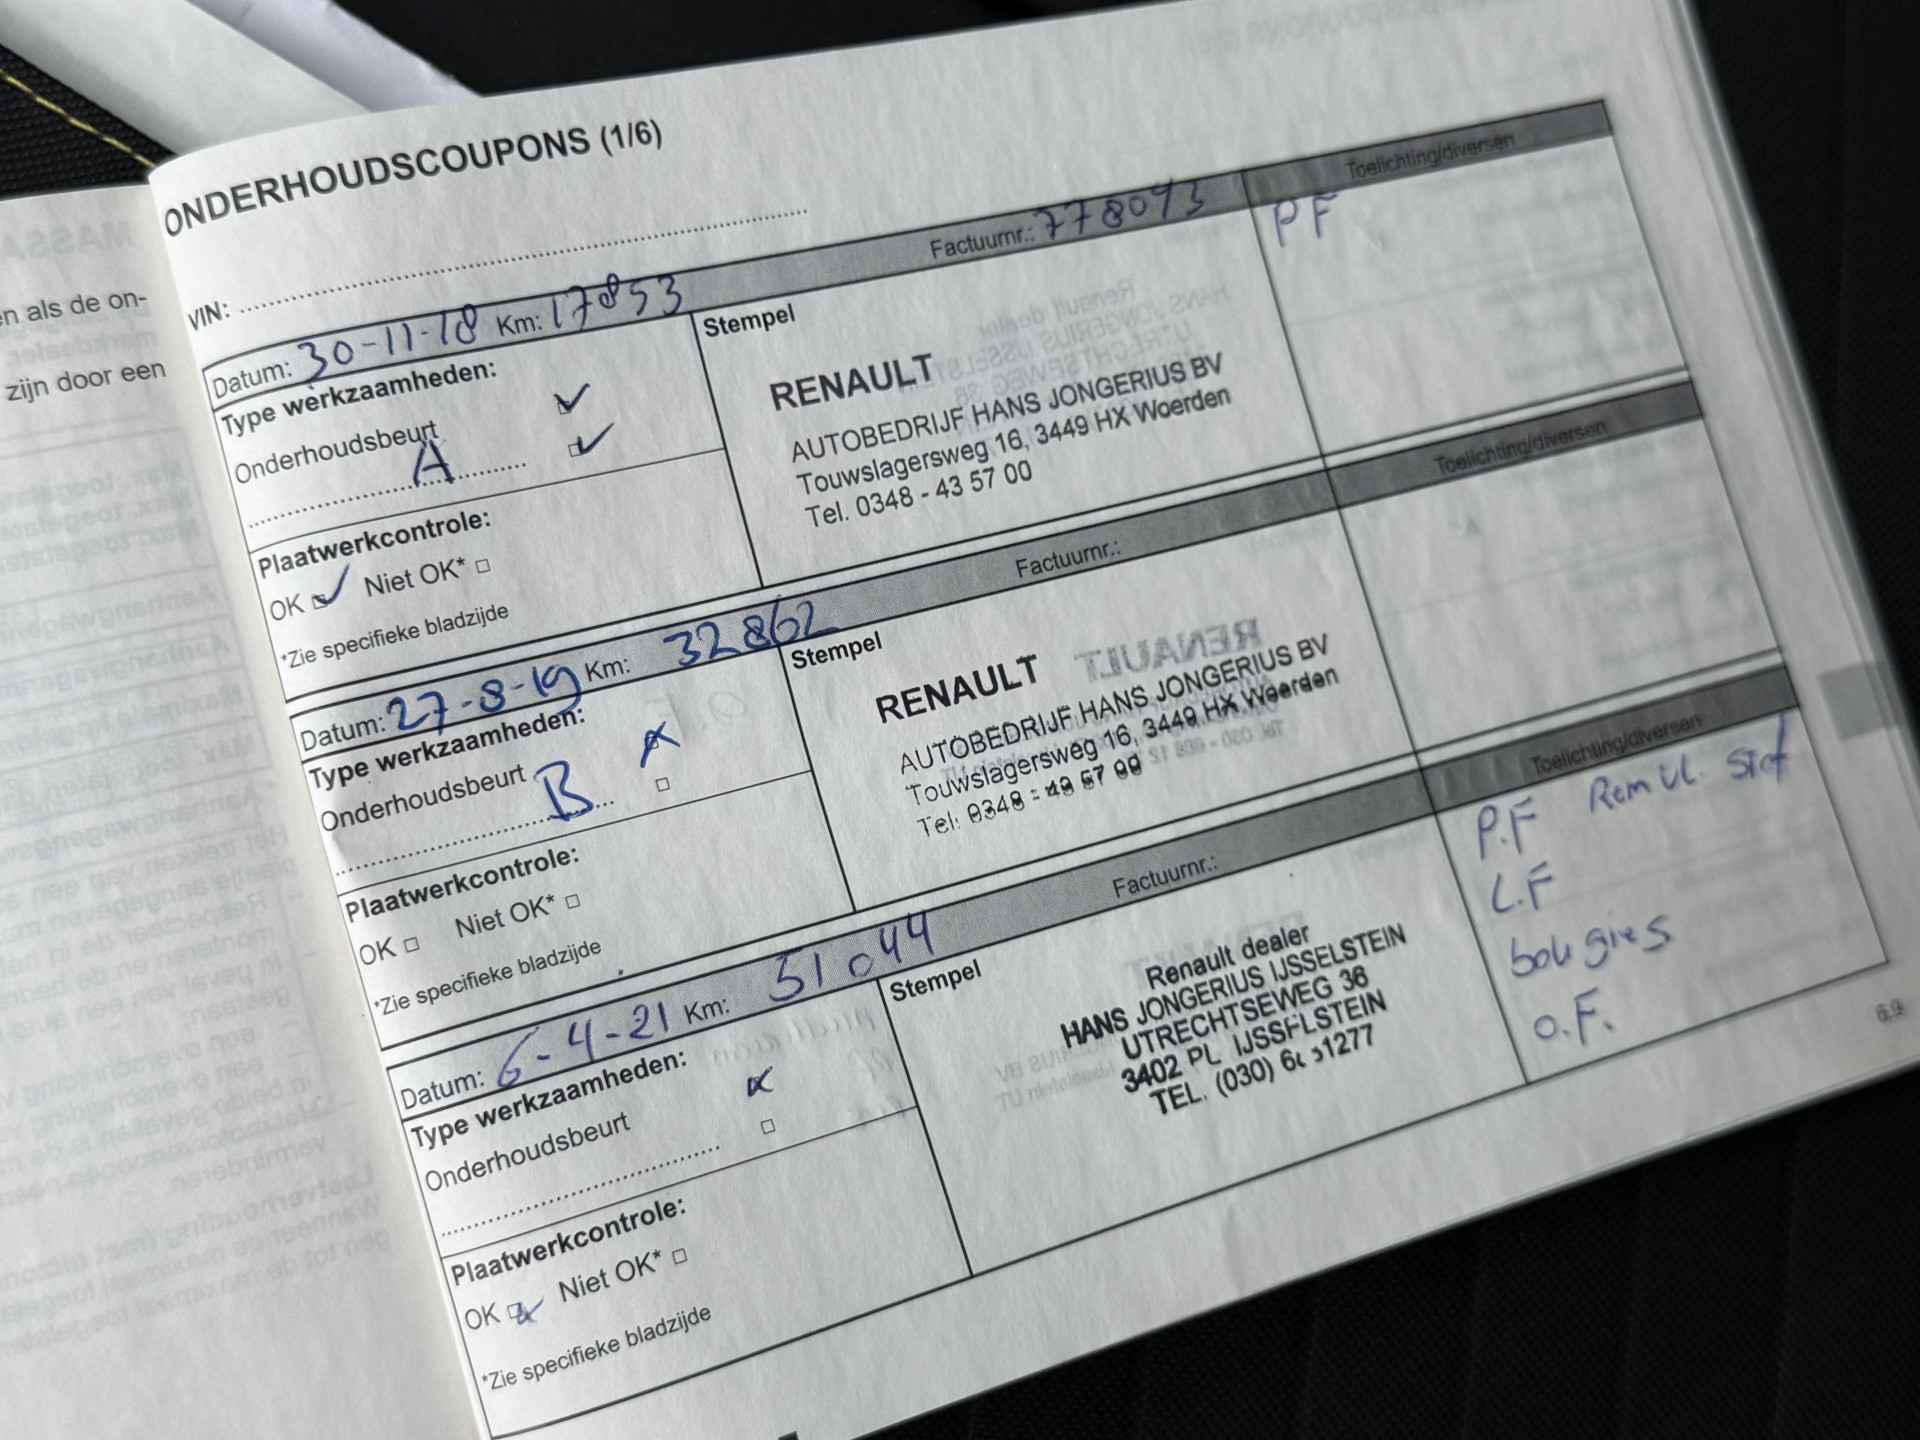 ONDERHOUDSCOUPONS (1/6)
VIN:
Datum: 30-11-18 Km: 17853 Factuurnr.: 778093 Toelichting/diversen
Type werkzaamheden:
Onderhoudsbeurt
A
Plaatwerkcontrole:
OK Niet OK*
*Zie specifieke bladzijde
Stempel
RENAULT
AUTOBEDRIJF HANS JONGERIUS BV
Touwslagersweg 16, 3449 HX Woerden
Tel. 0348 - 43 57 00
PF
Datum: 27-8-19 Km: 32862 Factuurnr.: Toelichting/diversen
Type werkzaamheden:
Onderhoudsbeurt
B
Plaatwerkcontrole:
OK Niet OK*
*Zie specifieke bladzijde
Stempel
RENAULT
AUTOBEDRIJF HANS JONGERIUS BV
Touwslagersweg 16, 3449 HX Woerden
Tel: 0348 - 43 57 00
Datum: 6-4-21 Km: 51044 Factuurnr.: Toelichting/diversen
Type werkzaamheden:
Onderhoudsbeurt
Plaatwerkcontrole:
OK Niet OK*
*Zie specifieke bladzijde
Stempel
Renault dealer
HANS JONGERIUS IJSSELSTEIN
UTRECHTSEWEG 36
3402 PL IJSSELSTEIN
TEL. (030)
P.F Rem Vl.
L.F
bougies
O.F.
6.9
en als de on-
zijn door een